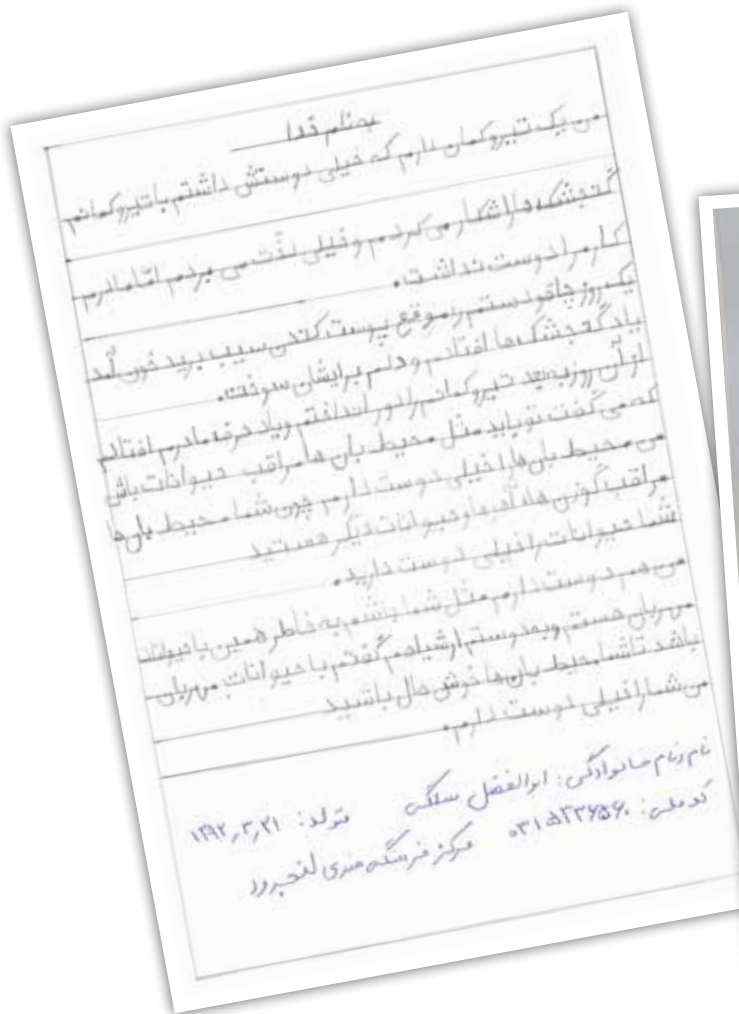 به نام خدا
من یک تیروکمان دارم که خیلی دوستش داشتم با تیروکمانم
گنجشک ها را شکار می کردم و خیلی لذّت می بردم امّا مادرم
کارم را دوست نداشت.
یک روز چاقو دستم را موقع پوست کندن سیب برید خون آمد
یاد گنجشک ها افتادم و دلم برایشان سوخت.
از آن روز به بعد تیروکمانم را دور انداختم و یاد حرف مادرم افتادم
که می گفت تو باید مثل محیط بان ها مراقب حیوانات باش
من محیط بان ها را خیلی دوست دارم چون شما محیط بان ها
مراقب گوزن ها، آهوها و حیوانات دیگر هستید
شما حیوانات را خیلی دوست دارید.
من هم دوست دارم مثل شما باشم به خاطر همین با حیوانات
مهربان هستم و به دوستم ارشیا هم گفتم با حیوانات مهربان
باشد تا شما محیط بان ها خوش حال باشید
من شما را خیلی دوست دارم.
نام و نام خانوادگی: ابوالفضل سلگی متولد: ۱۳۹۲٫۳٫۲۱
کد ملی: ۰۳۱۵۲۳۶۵۶۰ مرکز فرهنگی هنری